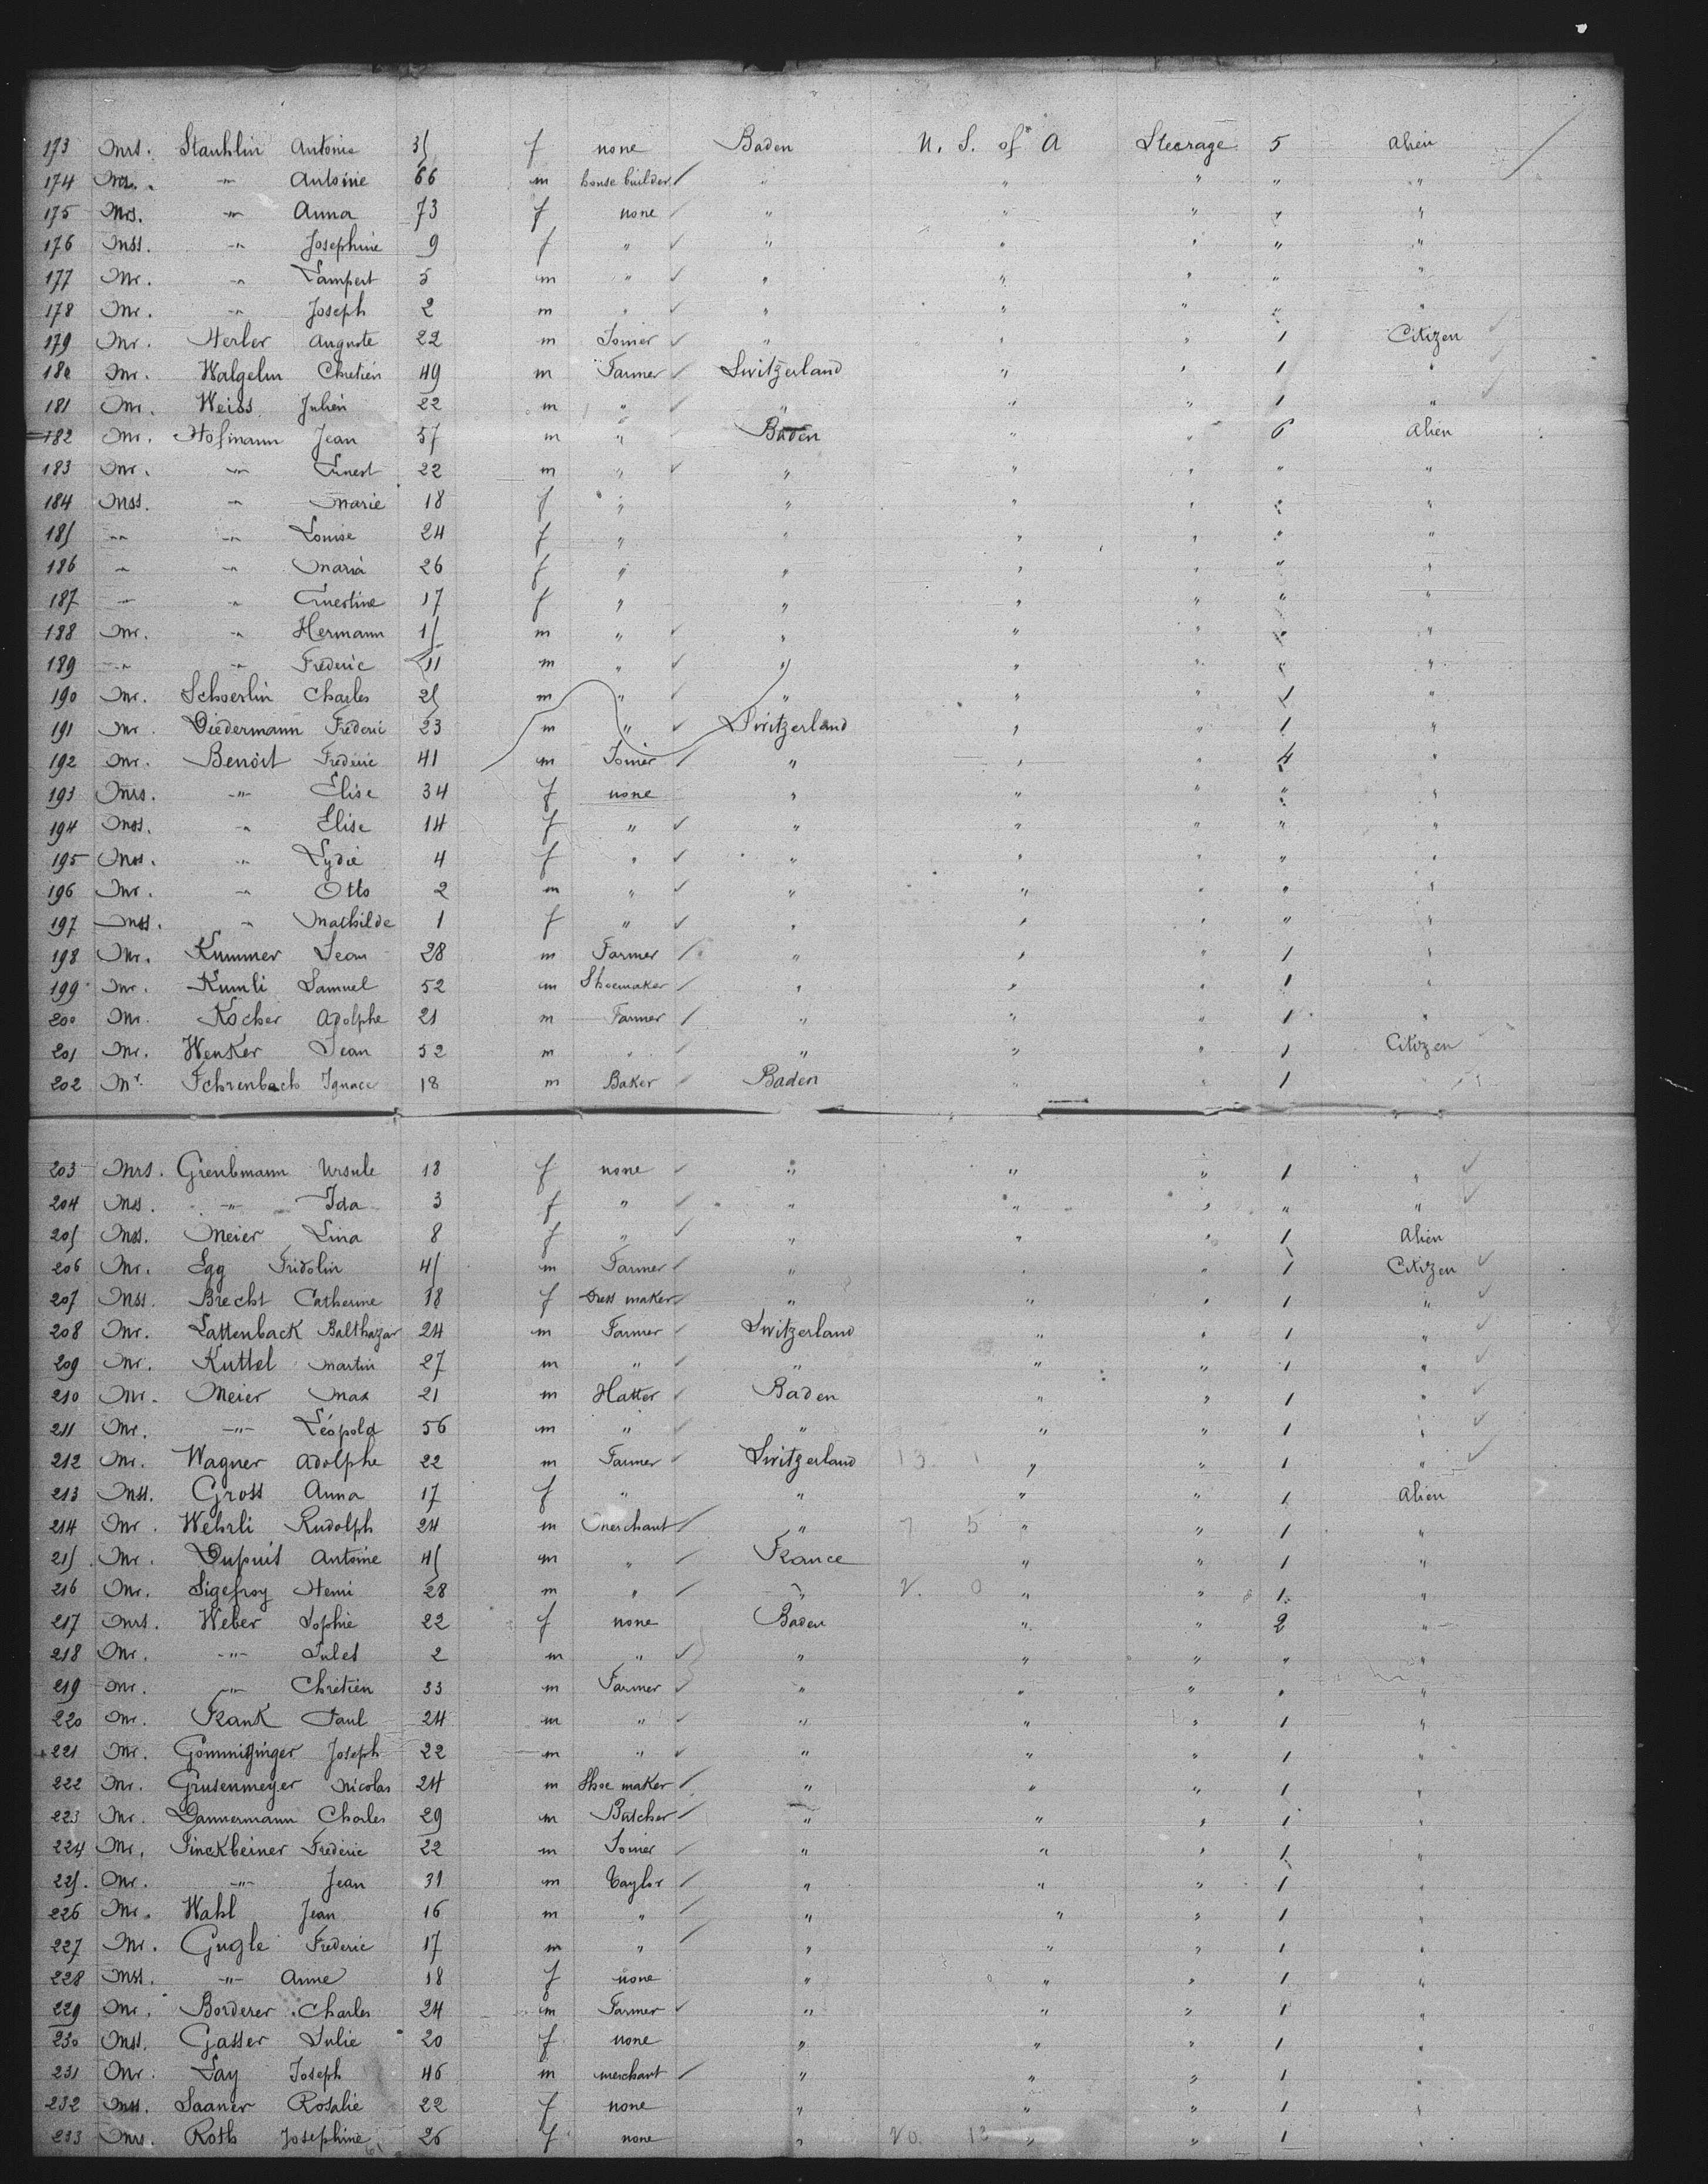 173 Mrs. Stauhlin Antonie 35 f none Baden U. S. of A Steerage 5 Alien
174 Mr. -"- Antoine 66 m house builder " " " " "
175 Mrs. -"- Anna 73 f none " " " " "
176 Mss. -"- Josephine 9 f " " " " " "
177 Mr. -"- Lampert 5 m " " " " " "
178 Mr. -"- Joseph 2 m " " " " " "
179 Mr. Herler Auguste 22 m Joiner " " " 1 Citizen
180 Mr. Walgelm Chretien 49 m Farmer Switzerland " " 1 "
181 Mr. Weiss Julien 22 m " " " " 1 "
182 Mr. Hofmann Jean 57 m " Baden " " 6 Alien
183 Mr. -"- Ernest 22 m " " " " " "
184 Mss. -"- Marie 18 f " " " " " "
185 -"- -"- Louise 24 f " " " " " "
186 -"- -"- Maria 26 f " " " " " "
187 -"- -"- Ernestine 17 f " " " " " "
188 Mr. -"- Hermann 15 m " " " " " "
189 -"- -"- Frederic 11 m " " " " " "
190 Mr. Schoerlin Charles 25 m " " " " 1 "
191 Mr. Diedermann Frederic 23 m " Switzerland " " 1 "
192 Mr. Benoit Frederic 41 m Joiner " " " 4 "
193 Mrs. -"- Elise 34 f none " " " " "
194 Mss. -"- Elise 14 f " " " " " "
195 Mss. -"- Lydie 4 f " " " " " "
196 Mr. -"- Otto 2 m " " " " " "
197 Mss. -"- Mathilde 1 f " " " " " "
198 Mr. Kummer Jean 28 m Farmer " " " 1 "
199 Mr. Kumli Samuel 52 m Shoemaker " " " 1 "
200 Mr. Kocher Adolphe 21 m Farmer " " " 1 "
201 Mr. Wenker Jean 52 m " " " " 1 Citizen
202 Mr. Fehrenbach Ignace 18 m Baker Baden " " 1 "
203 Mrs. Greubmann Ursule 18 f none " " " 1 "
204 Mss. -"- Ida 3 f " " " " " "
205 Mss. Meier Lina 8 f " " " " 1 Alien
206 Mr. Egg Fridolin 45 m Farmer " " " 1 Citizen
207 Mss. Brecht Catherine 18 f Dress maker " " " 1 "
208 Mr. Lattenback Balthazar 24 m Farmer Switzerland " " 1 "
209 Mr. Kuttel Martin 27 m " " " " 1 "
210 Mr. Meier Max 21 m Hatter Baden " " 1 "
211 Mr. -"- Léopold 56 m " " " " 1 "
212 Mr. Wagner Adolphe 22 m Farmer Switzerland " " 1 "
213 Mss. Gross Anna 17 f " " " " 1 Alien
214 Mr. Wehrli Rudolph 24 m Merchant " " " 1 "
215 Mr. Dupuis Antoine 45 m " France " " 1 "
216 Mr. Sigefroy Henri 28 m " " " " 1 "
217 Mrs. Weber Sophie 22 f none Baden " " 2 "
218 Mr. -"- Jules 2 m " " " " " "
219 Mr. -"- Chretien 33 m Farmer " " " " "
220 Mr. Frank Paul 24 m " " " " 1 "
221 Mr. Joseph 22 m " " " " 1 "
222 Mr. Grusenmeyer Nicolas 24 m Shoe maker " " " 1 "
223 Mr. Dannermann Charles 29 m Butcher " " " 1 "
224 Mr. Finckbeiner Frederic 22 m Joiner " " " 1 "
225. Mr. -"- Jean 31 m Taylor " " " 1 "
226 Mr. Wahl Jean 16 m " " " " 1 "
227 Mr. Gugle Frederic 17 m " " " " 1 "
228 Mss. -"- Anne 18 f none " " " 1 "
229 Mr. Borderer Charles 24 m Farmer " " " 1 "
230 Mss. Gasser Julie 20 f none " " " 1 "
231 Mr. Lay Joseph 46 m merchant " " " 1 "
232 Mss. Saaner Rosalie 22 f none " " " 1 "
233 Mrs. Roth Josephine 26 f none " " " 1 "